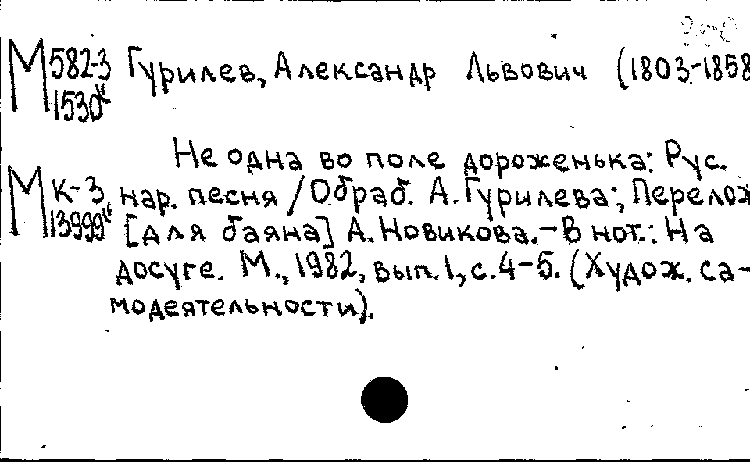 М 582-3 Гурилев, Александр Львович (1803-1858
1530
Не одна во поле дороженька: Рус.
М К-3 нар. песня / Обраб. А. Гурилева; Перелож
13999 [для баяна] А. Новикова. - В нот.: На
досуге. М., 1982, вып. 1, с. 4-5. (Худож. са-
модеятельности).